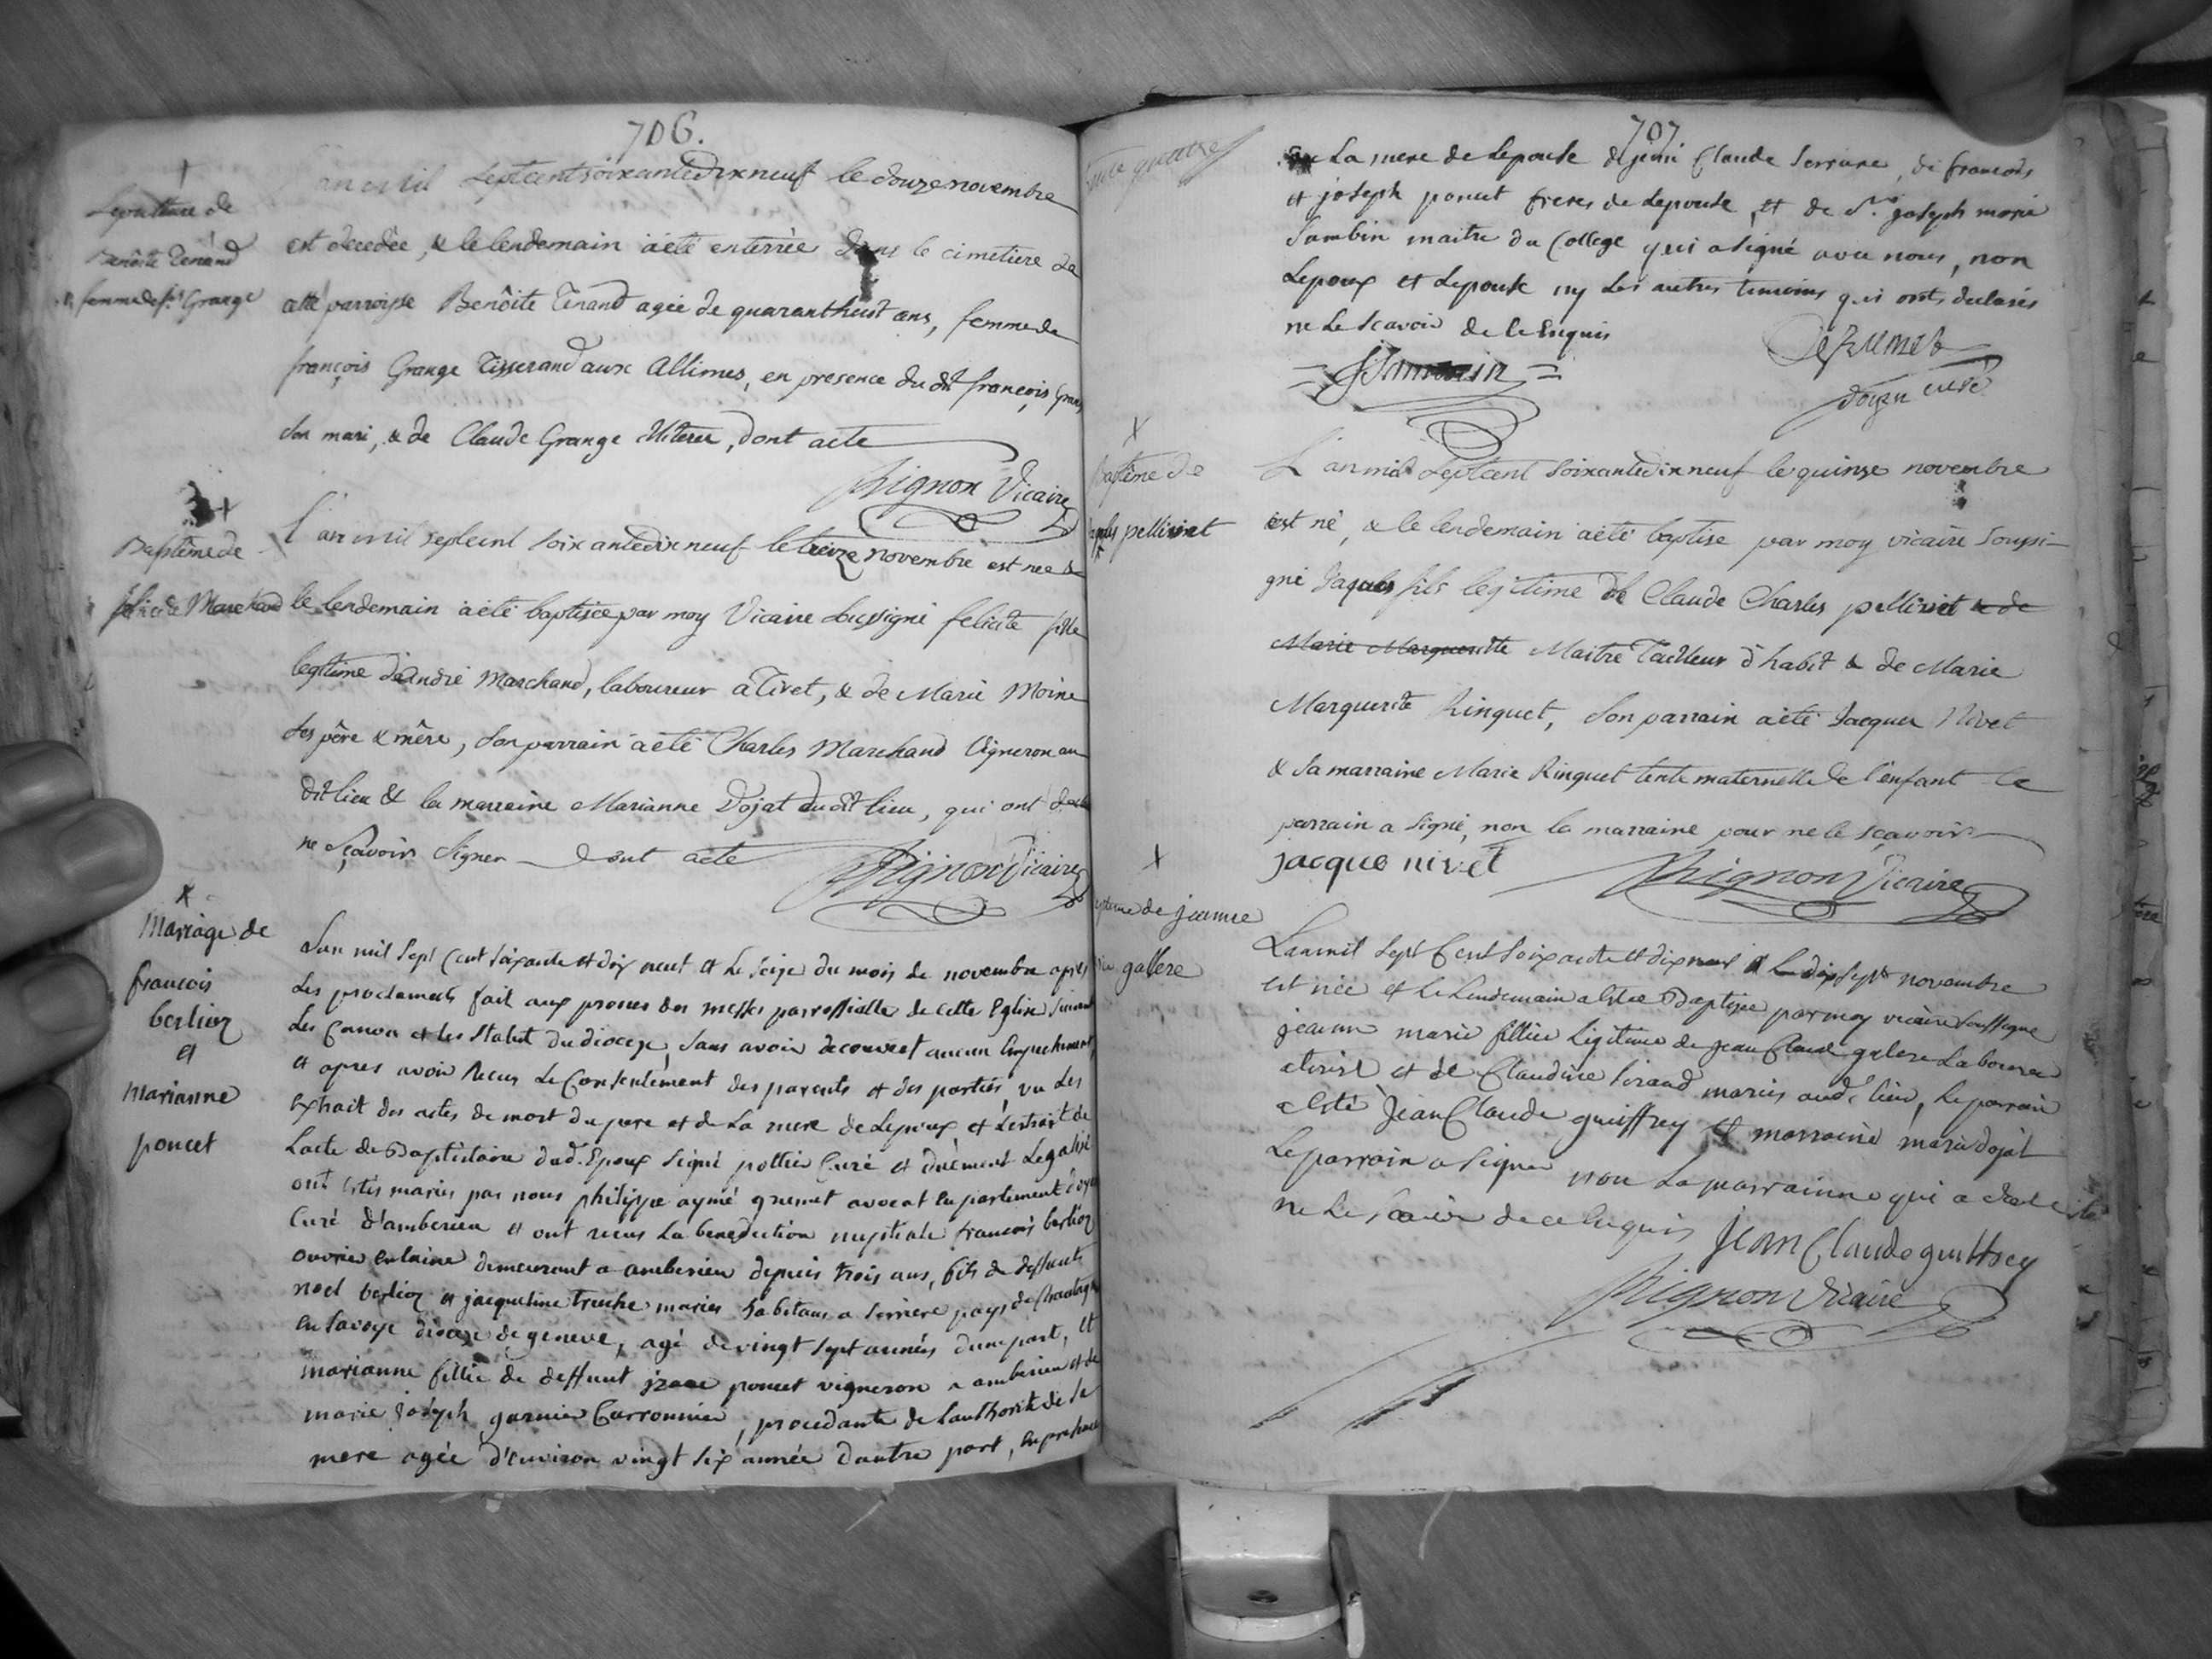 706.
+
Sepulture de
Benoîte Tenand
femme de f.s Grange
L'an mil septcentsoixantedixneuf le douze novembre
est decedée, & le lendemain a été enterrée dans le cimetiere de
cette parroisse Benôite Tenand agée de quaranthuit ans, femme de
françois Grange Tisserand aux Allimes, en presence du dit françois Grange
son mari, & de Claude Grange Miterer, dont acte
Rignon Vicaire
+
Baptême de
felicité Marchand
L'an mil septcent soixantedixneuf le treize novembre est née &
le lendemain a été baptisée par moy Vicaire soussigné felicité fille
legitime d'andré Marchand, laboureur a Tiret, & de Marie Moine
ses père & mère, son parrain a été Charles Marchand Vigneron au
dit lieu & la marraine Marianne Dojat du dit lieu, qui ont
ne sçavoir signer dont acte
Rignon Vicaire
x
Mariage de
francois
berlioz
et
marianne
poncet
Lan mil sept cent soixante et dix neuf et le seize du mois de novembre apres
les proclamats fait aux prones des messes parroissialle de cette Eglise suivant
les Canon et les statut du dioceze, sans avoir decouvert aucun Empechement,
et apres avoir recus le Consentement des parents et des parties, vu les
extrait des actes de mort du pere et de la mere de lepoux et lextrait de
lacte de Baptistaire dud. Epoux signé pottier Curé et duement legalisé
ont estés mariés par nous philippe aymé grumet avocat en parlement doyen
Curé d'amberieu et ont recus la benediction nuptiale francois berlioz
ouvrier en laine demeurant a amberieu depuis trois ans, fils de deffunts
noel berlioz et jacqueline truche mariés habitans a serriere pays de Chautagne
en savoye dioceze de geneve, agé de vingt sept années dune part, et
marianne fillie de deffunt poncet vigneron a amberieu et de
marie joseph garnier Carronnier, procedante de lauthorité de sa
mere agée d'environ vingt six année dautre part, en presence
707
de La mere de lepouse de Claude serrure, de francois
et joseph poncet freres de lepouse, et de Sr. joseph marie
Jambin maitre du College qui a signé avec nous, non
lepoux et lepouse ny les autres temoins qui onts declarés
ne le scavoir de ce Enquis
Jambin
Grumet
doyen curé
x
Baptême de
jaques pellivet
L'an mil septcent soixantedixneuf le quinze novembre
est né, & le lendemain a été baptisé par moy vicaire soussi-
gné Jaques fils legitime de Claude Charles pellivet & de
Marie Margueritte Maitre Tailleur d'habit & de Marie
Marguerite Ringuet, son parrain a été Jacques Nivet
& sa marraine Marie Ringuet tente maternelle de l'enfant le
parrain a signé, non la marraine pour ne le sçavoir
jacque nivet
Rignon Vicaire
x
Bapteme de jeanne
marie gallere
Lan mil sept Cent soixante et dix neuf et le dix sept novembre
est née et le lendemain a estée Baptisée par moy vicaire soussigné
jeanne marie fillie legitime de jean Claude galere laboureur
a tiret et de Claudine siraud mariés aud. lieu, le parrain
a esté Jean Claude guiffrey et marraine marie dojat
le parrain a signer non la marrainne qui a declaré
ne le scavoir de ce Enquis
Jean Claude guiffrey
Rignon Vicaire